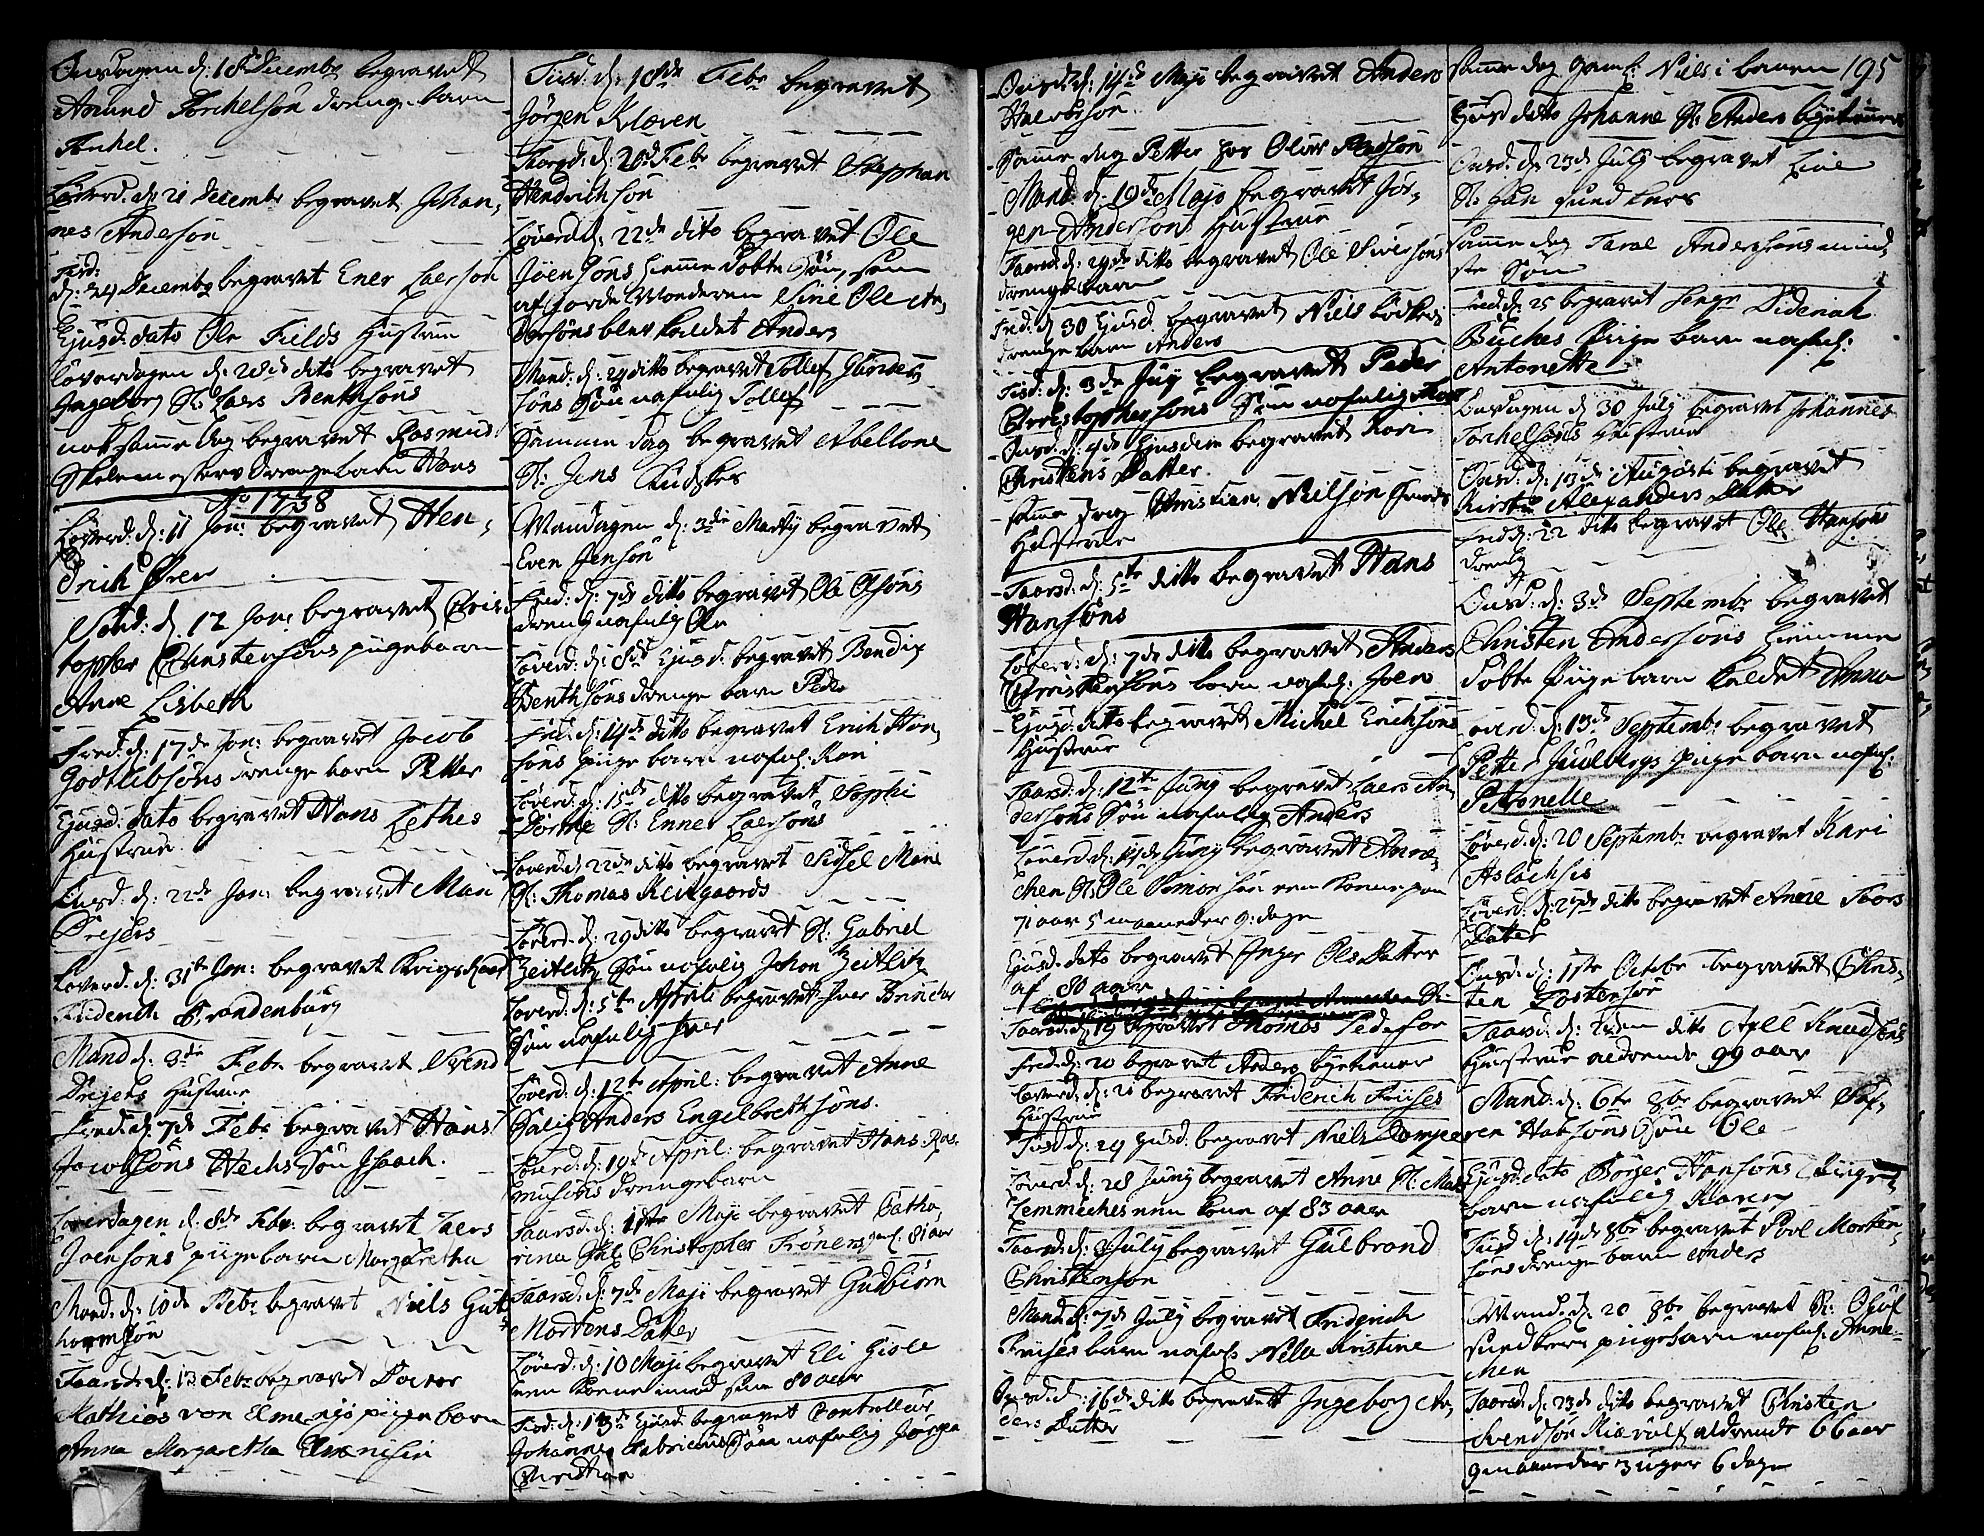 Onsdagen d: 18de Decembr begravet
Amund Torchelsøn drenge barn
Torkel.
Løverd. d: 21 Decembr begravet Johan,
nes Andersøn
Tisd:
d: 24 Decembr begravet Ener Laersøn
Ejusd: dato Ole Fields Hustrue
Løverdagen d: 28de dito begravet
Ingeborg Sl: Laers Benthsøns
nok samme dag begravet Rasmus
drengebarn Hans
Ao 1738
Løverd: d: 11 Jan: begravet Hen,
drich Oren
Sønd: d. 12 Jan: begravet Chris
topher Christensøns pigebarn
Anne Lisbeth
Fred: d: 17de Jan: begravet Jacob
Godtlibsøns drenge barn Petter
Ejusd: dato begravet Hans Lethes
Hustrue
Onsd: d: 22de Jan: begravet Man
Drejers
Løverd: d: 31te Jan: begravet Krigs Raad
Friderich Brandenburg
Mand d: 3de Febr begravet Svend
Drejers Hustrue
Fred: d: 7de Febr begravet Hans
Jacobsøns Hechs Søn Isaach.
Løverdagen d: 8de Febr: begravet Laers
Joensøns pigebarn Margaretha
Mand: d: 10de Febr begravet Niels Gut
hormsøn
Taarsd: d: 13 Febr begravet Doctor
Mathias von pige barn
Anna Margaretha
Tisd: d: 18de Febr begravet
Jørgen Kløven
Taarsd: d: 20de Febr begravet Stephan
Hendrichsøn
Løverd d: 22de dito begravet Ole
Joensøns hiemme døbte Søn, som
af Jorde Moderen Sine Ole An,
dersøns blev kaldet Anders
Mand: d: 24 ditto begravet Tollef Gunders
søns Søn nafnlig Tollef
Samme dag begravet Abellone
Sl: Jens Kudskes
Mandagen d: 3de Martij begravet
Even Jensøn
Fred: d: 7de ditto begravet Ole Olsøns
dreng nafnlig Ole
Løverd: d: 8de Ejusd. begravet Bendix
Benthsøns drenge barn Peder
Fred: d: 14de ditto begravet Erich Han,
søns pige barn nafnl: Kari
Løverd: d: 15de ditto begravet Sophi
Dorthe Sl: Enner Laersøns
Løverd: d: 22de ditto begravet Sidsel Marie
Sl: Thomas Reitgaards
Løverd: d: 29 ditto begravet Sr. Gabriel
Zeitlitz Søn nafnlig Johan Zeitlitz
Løverd: d: 5te Aprili begravet Iver Brinchs
Søn nafnlig Iver
Løverd: d: 12te April: begravet Anne
Salig Anders Engelbrethsøns.
Løverd: d: 19de April: begravet Hans Ras,
musøns drengebarn
Taarsd: d: 1ste Maji begravet Catha,
rina Sal. Christopher Frøners gml: 81 aar
Taarsd: d: 7de Maji begravet Gudbiørn
Mortens Datter
Løverd: d: 10 Maji begravet Eli Gisle
een Kone imod sine 80 aar
Tisd: d: 13de Ejusd. begravet Controlleur
Johannes Fabricius Søn nafnlig Jørgen
Christian
Onsd: d: 14de Majo begravet Anders
Halvorsøn
Samme dag Petter hos Oluv Madsøn
Mand: d: 19de Majo begravet Jør,
gen Andersøns Hustrue
Taarsd: d: 29de ditto begravet Ole Siversøns
drengebarn
Fred: d: 30 Ejusd begravet Niels Bødkers
drenge barn Anders
Tisd: d: 3de Juny begravet Peder
Christophersøns Søn nafnlig
Onsd: d: 4de Ejusdem begravet Kari
Christens Datter.
Samme dag Christian Nielsøn
Hustrue
Taarsd: d: 5te ditto begravet Hans
Hansøns
Løverd: d: 7de ditto begravet Anders
Christensøns barn nafnl: Joen
Ejusd: ditto begravet Michel Erichsøns
Hustrue
Taarsd: d: 12te Juny begravet Laers An
dersøns Søn nafnlig Anders
Løverd: d: 14de Juny begravet Anne,
chen Sl. Ole Simonsøn een Kone paa
71 aar 5 maaneder 9: dage
Ejusd: dato begravet Inger Ols Datter
af 80 aar
Taarsd: d: 19 begravet Thomas Pedersøn
Fred: d: 20 begravet Anders bytiener
Løverd: d: 21 begravet Friderich Friises
Hustrue
Tisd: d: 24 Ejusd: begravet Niels
Løverd: d: 28 Juny begravet Anne Sl:
Lemmiches een Kone af 83 aar
Taarsd: d: 3 July begravet Gulbrand
Christensøn
Mand: d: 7de July begravet Friderich
Friises barn nafnl: Nille Kristine
Onsd: d: 16de ditto begravet Ingeborg An,
ders Datter
Samme dag gaml: Niels i barnen 195
Ejusd ditto Johanne Sl: Anders bytieners
Onsd: d: 23de July begravet Live
Sl: Hans sundknes
Samme dag Taral Andersøns mind,
ste Søn
Fred: d: 25 begravet Diderich
Büches Piige barn nafnl:
Antonette
Onsdagen d 30 July begravet Johannes
Torchelsøns Hustrue
Onsd: d: 13de Augusti begravet
Kirstin Alexanders Datter
Fred: d: 22 dito begravet Ole Hansøns
dreng
Onsd: d: 3de Septembr begravet
Christen Andersøns hiemme
døbte Piige barn kaldet Anna
Løverd: d: 13de Septembr begravet
Petter Juulbergs pige barn nafnl:
Petronelle
Løverd: d: 20 Septembr begravet Kari
Aslachsis
Løverd: d: 27de ditto begravet Anne Taars
Datter
Onsd: d: 1ste Octobr begravet Chris,
ten Tostensøn
Taarsd: d: 2den ditto Apell Knudsøns
Hustrue aldrende 99 aar
Mand: d: 6te 8br begravet
ren Hansøns Søn Ole
Ejusd: dato Børger Hansøns Piige
barn nafnlig Karen
Tisd: d: 14de 8br begravet Povl Morten,
søns drenge barn Anders
Mand: d: 20 8br begravet Sr: Oluf
Sundbers pigebarn nafnl: Anne-
chen
Taarsd: d: 23de ditto begravet Christen
Svendsøn Kierulf aldrende 66 aar
9 maaneder 3 uger 6 dage